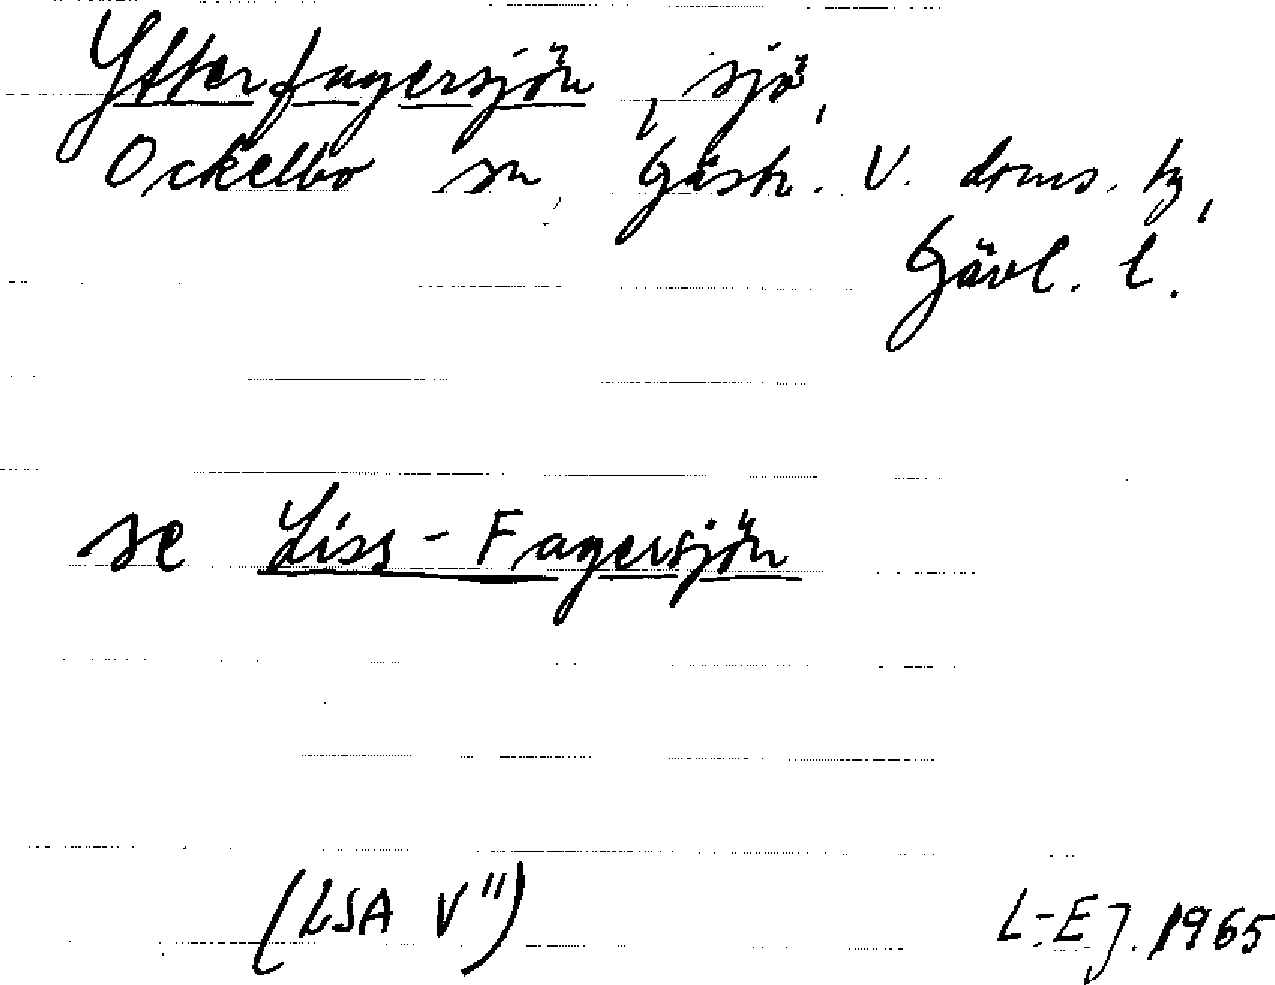 Ytterfagersjön, sjö,
Ockelbo sn, Gästr. V. doms. hg,
Gävl. l.
se Liss-Fagersjön
(LSA V")
L-E J. 1965